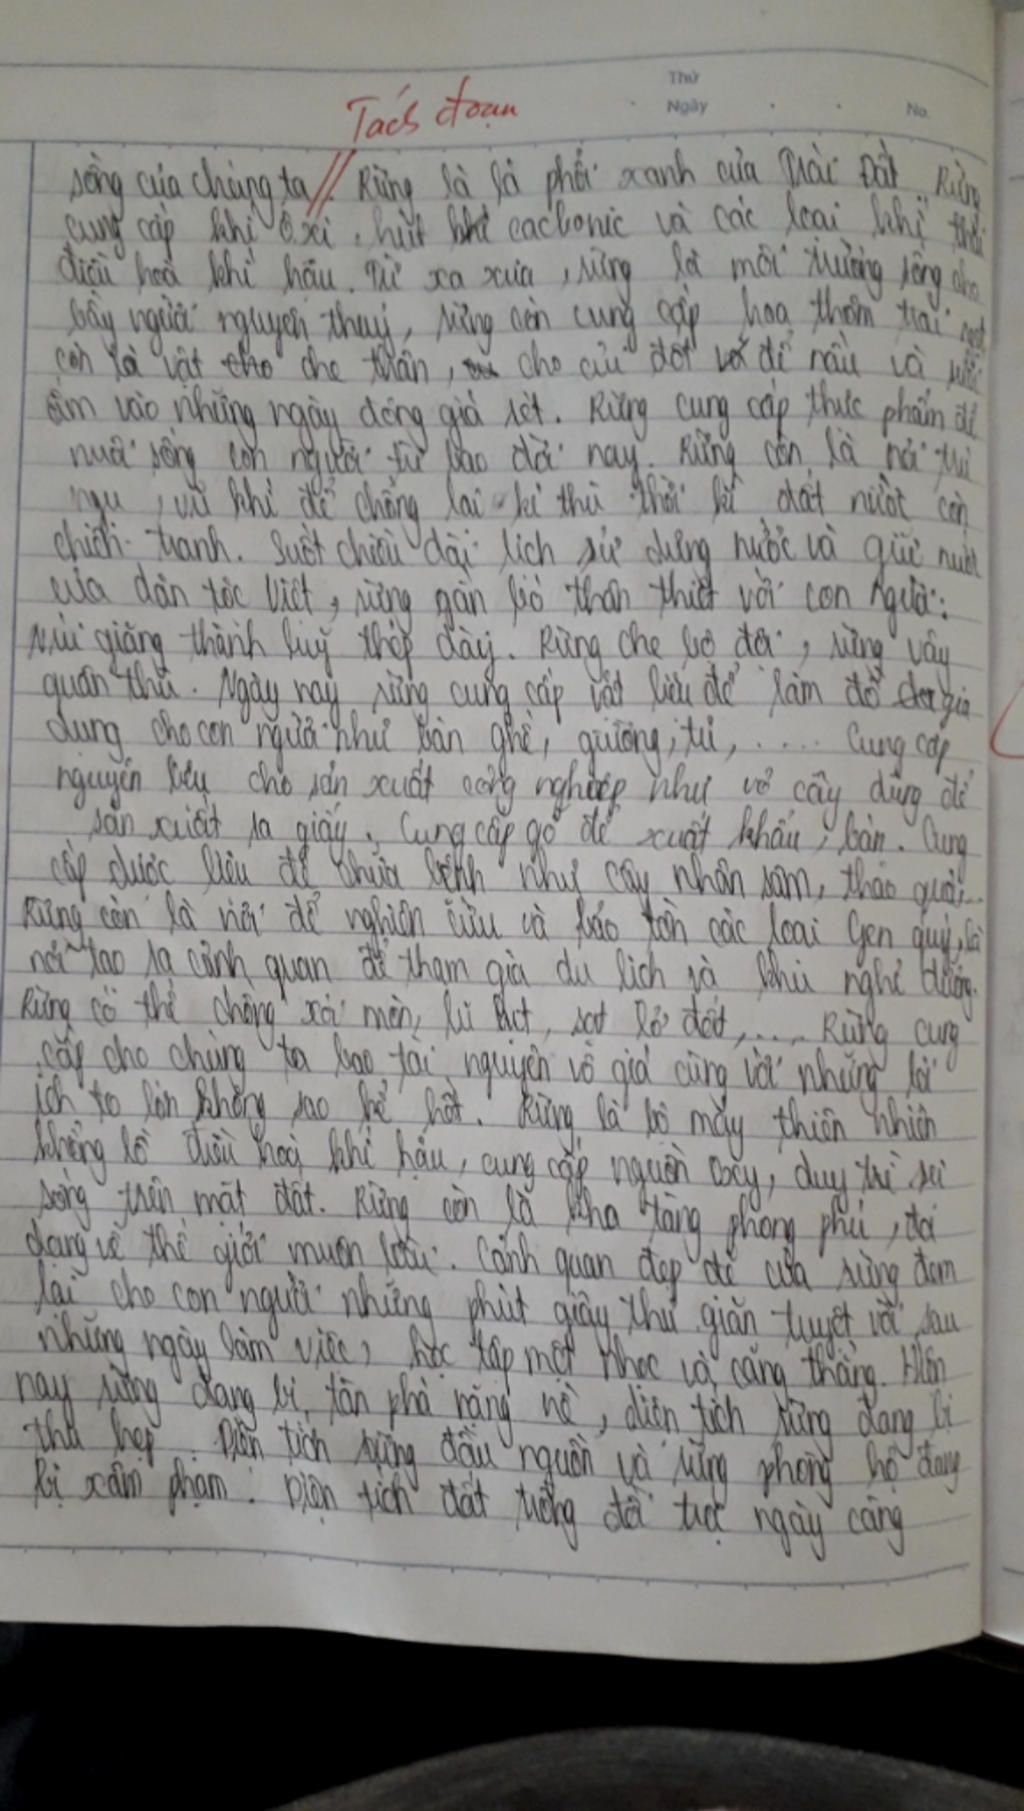 Thứ
Ngày
No.
Tách đoạn
sống của chúng ta // Rừng là lá phổi xanh của Trái Đất. Rừng
cung cấp khí ôxi, hút khí cacbonic và các loại khí thải
điều hoà khí hậu. Từ xa xưa, rừng là môi trường sống cho
bầy người nguyên thuỷ, rừng còn cung cấp hoa thơm trái ngọt
còn là vật che thân, cho củi đốt để nấu và sưởi
ấm vào những ngày đông giá rét. Rừng cung cấp thực phẩm để
nuôi sống con người từ bao đời nay. Rừng còn là nơi trú
ngụ, vũ khí để chống lại kẻ thù thời kì đất nước còn
chiến tranh. Suốt chiều dài lịch sử dựng nước và giữ nước
của dân tộc Việt, rừng gắn bó thân thiết với con người:
Núi giăng thành luỹ thép dày. Rừng che bộ đội, rừng vây
quân thù. Ngày nay rừng cung cấp vật liệu để làm đồ gia
dụng cho con người như bàn ghế, giường, tủ, ..... Cung cấp
nguyên liệu cho sản xuất công nghiệp như vỏ cây dùng để
sản xuất ra giấy. Cung cấp gỗ để xuất khẩu, bán. Cung
cấp dược liệu để chữa bệnh như cây nhân sâm, thảo quả...
Rừng còn là nơi để nghiên cứu và bảo tồn các loại gen quý, là
nơi tạo ra cảnh quan để tham gia du lịch và khu nghỉ dưỡng.
Rừng có thể chống xói mòn, lũ lụt, sạt lở đất, .... Rừng cung
cấp cho chúng ta bao tài nguyên vô giá cùng với những lợi
ích to lớn không sao kể hết. Rừng là bộ máy thiên nhiên
khổng lồ điều hoà khí hậu, cung cấp nguồn oxy, duy trì sự
sống trên mặt đất. Rừng còn là kho tàng phong phú, đa
dạng về thế giới muôn loài. Cảnh quan đẹp đẽ của rừng đem
lại cho con người những phút giây thư giãn tuyệt vời sau
những ngày làm việc, học tập mệt nhọc và căng thẳng. Hiện
nay rừng đang bị tàn phá nặng nề, diện tích rừng đang bị
thu hẹp. Diện tích rừng đầu nguồn và rừng phòng hộ đang
bị xâm phạm. Diện tích đất trống đồi trọc ngày càng